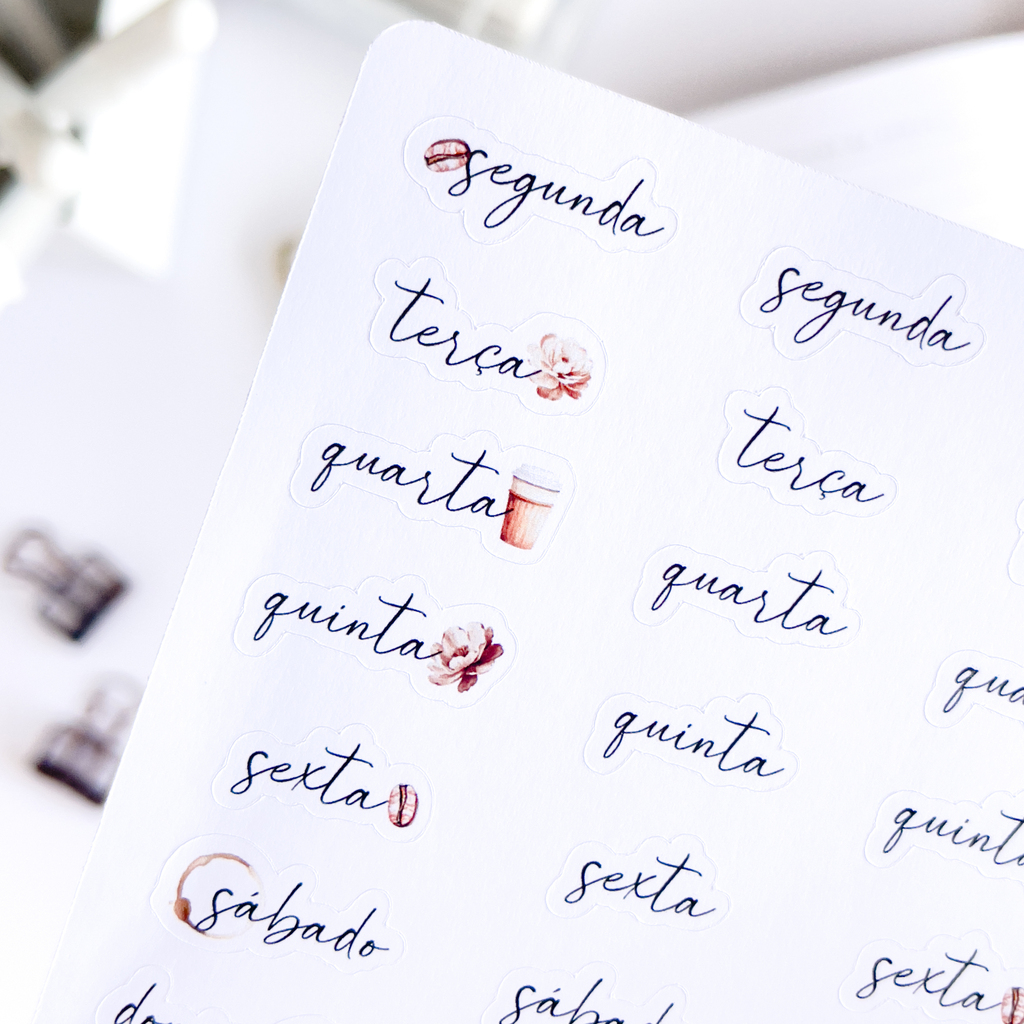 segunda
terça
quarta
quinta
sexta
sábado
segunda
terça
quarta
quinta
sexta
quinta
sexta